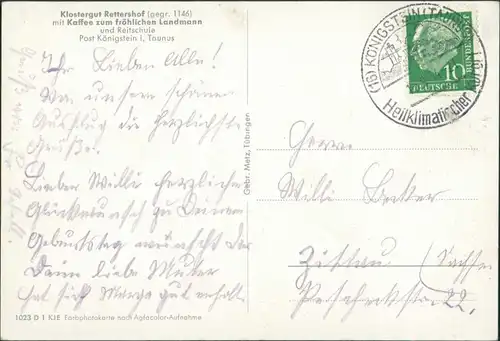 Klostergut Rettershof (gegr. 1146)
mit Kaffee zum fröhlichen Landmann
und Reitschule
Post Königstein i. Taunus
Ihr Lieben Alle!
Von unsern schönen
Ausflug die herzlichste
Grüße.
Lieber Willi herzlichen
Glückwunsch zu Deinem
Geburtstag wünscht Dir
Deine liebe Mutter
hat sich Margo gut erholt
1023 D 1 KJE Farbphotokarte nach Agfacolor-Aufnahme
Gebr. Metz, Tübingen
(16) KÖNIGSTEIN (TAUNUS)
Heilklimatischer Kurort
10
DEUTSCHE
BUNDESPOST
Herrn
Willi
Zittau /Sachsen
22.